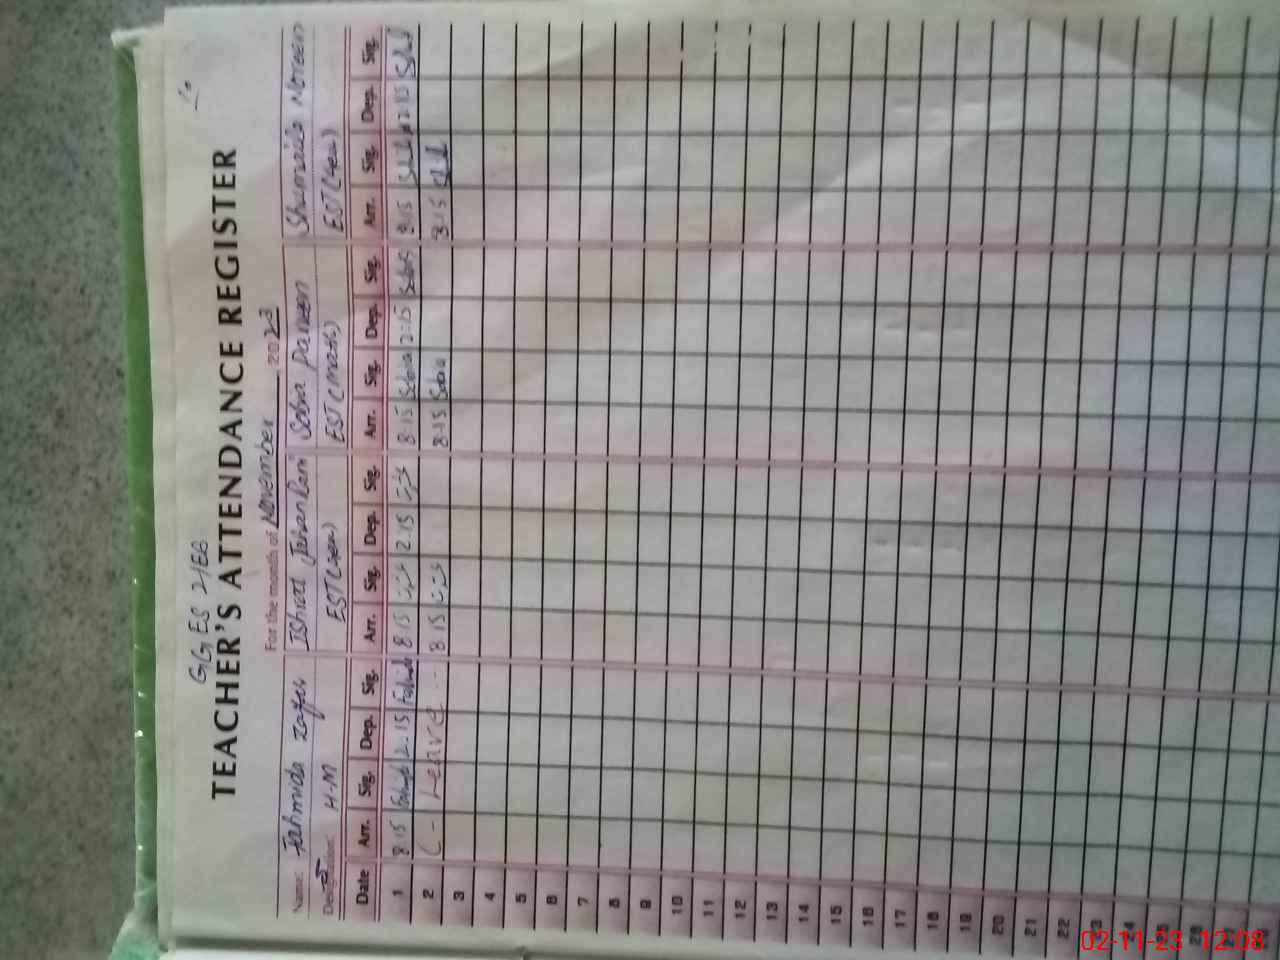 GGES 21EB
TEACHER'S ATTENDANCE REGISTER
For the month of November 2023
Name: Fahmida Zafar Ishrat Jahan Rani Sobia Parveen Shumaila Noreen
Designation: H-M EST (Gen) EST (Math) EST (Gen)
Date Arr. Sig. Dep. Sig. Arr. Sig. Dep. Sig. Arr. Sig. Dep. Sig. Arr. Sig. Dep. Sig.
1 8.15 2.15 8.15 2.15 8.15 Sobia 2:15 Sobia 8:15 2:15
2 ( - Leave - - 8.15 8.15 Sobia 8:15
3
4
5
6
7
8
9
10
11
12
13
14
15
16
17
18
19
20
21
22
23
24
25
26
02-11-23 12:08